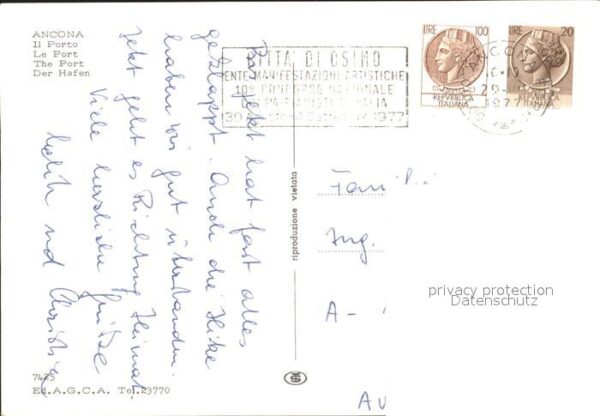 ANCONA
Il Porto
Le Port
The Port
Der Hafen
CITTA' DI OSIMO
ENTE MANIFESTAZIONI ARTISTICHE
10° CONCORSO NAZIONALE
COPPA PIANISTI D'ITALIA
30 1977
LIRE 100
REPVBBLICA
ITALIANA
LIRE 20
REPVBBLICA
ITALIANA
ANCONA
1977
Bis jetzt hat fast alles
geklappt. Auch die Hitze
haben wir gut überstanden.
Jetzt geht es Richtung Heimat
Viele herzliche Grüße
und
riproduzione vietata
Fam
Ing.
A-
AU
privacy protection
Datenschutz
7425
Ed.A.G.C.A. Tel.23770